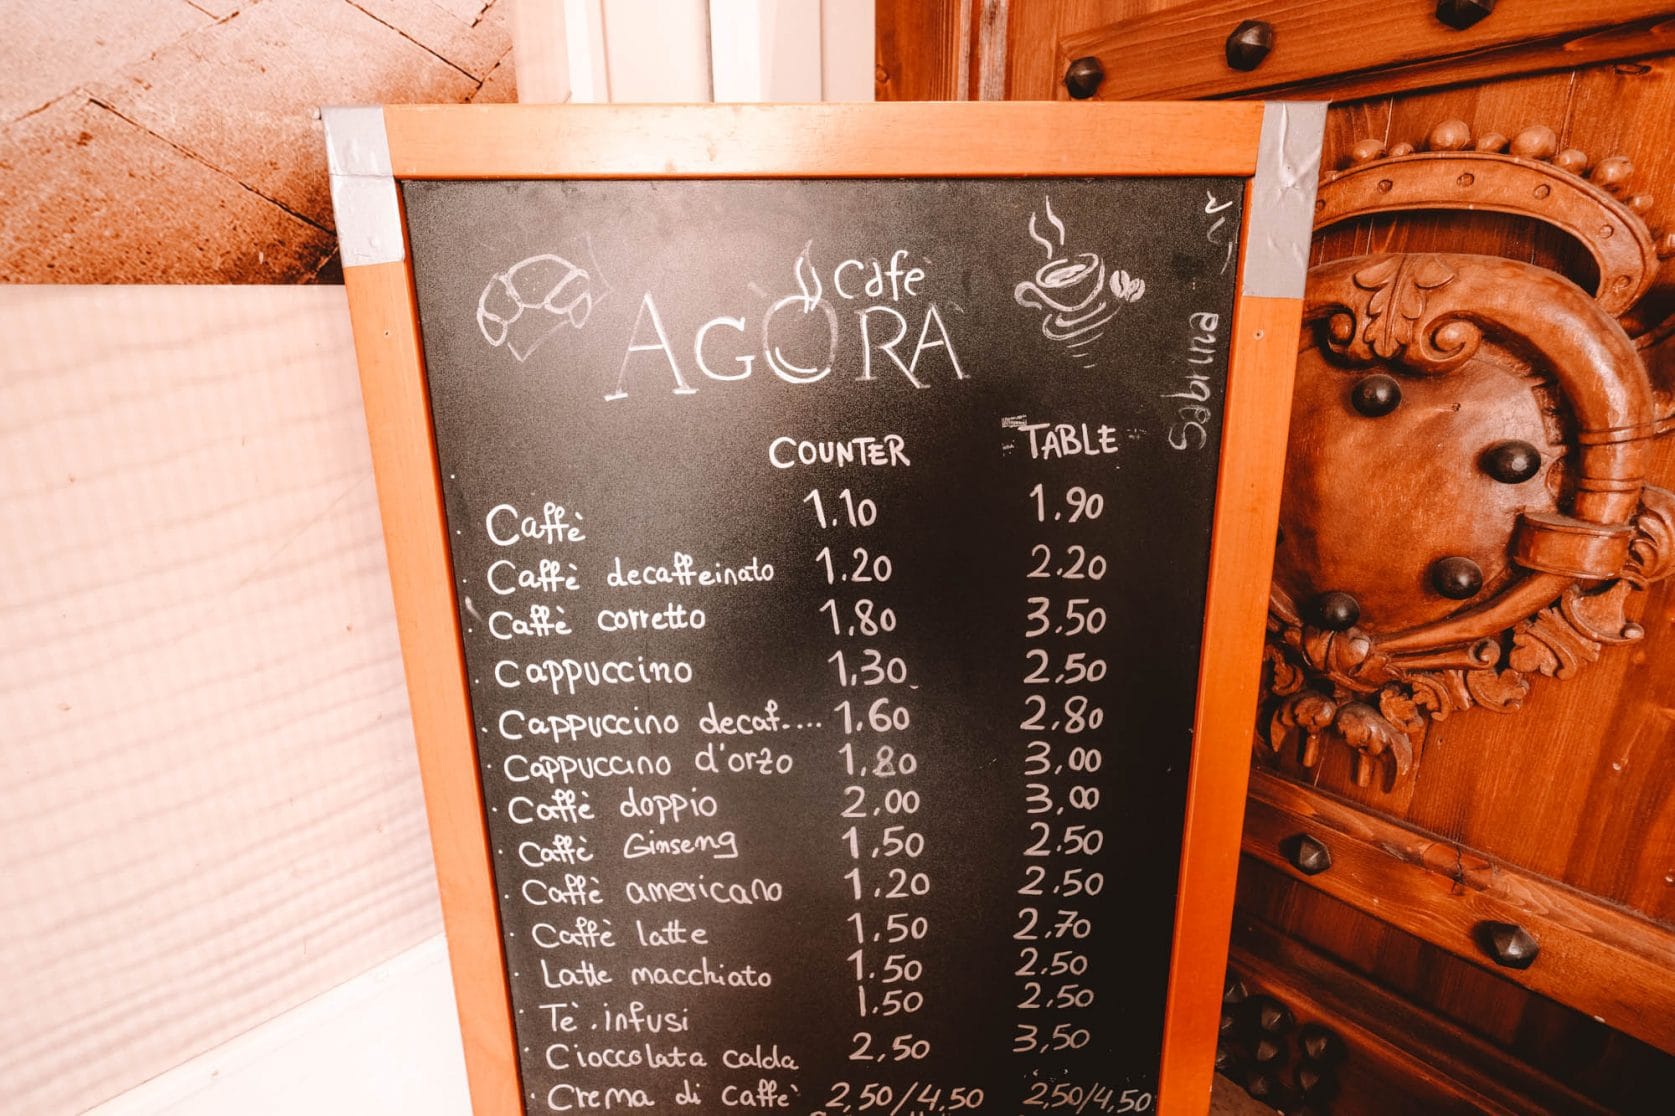 Cafe
AGORA
Sabrina
COUNTER TABLE
Caffè 1.10 1.90
Caffè decaffeinato 1.20 2.20
Caffè corretto 1,80 3.50
Cappuccino 1,30 2.50
Cappuccino decaf.... 1.60 2.80
Cappuccino d'orzo 1,80 3,00
Caffè doppio 2,00 3,00
Caffè Ginseng 1,50 2.50
Caffè americano 1.20 2.50
Caffè latte 1.50 2.70
Latte macchiato 1.50 2.50
Tè . infusi 1.50 2,50
Cioccolata calda 2,50 3,50
Crema di caffè 2,50/4,50 2,50/4,50